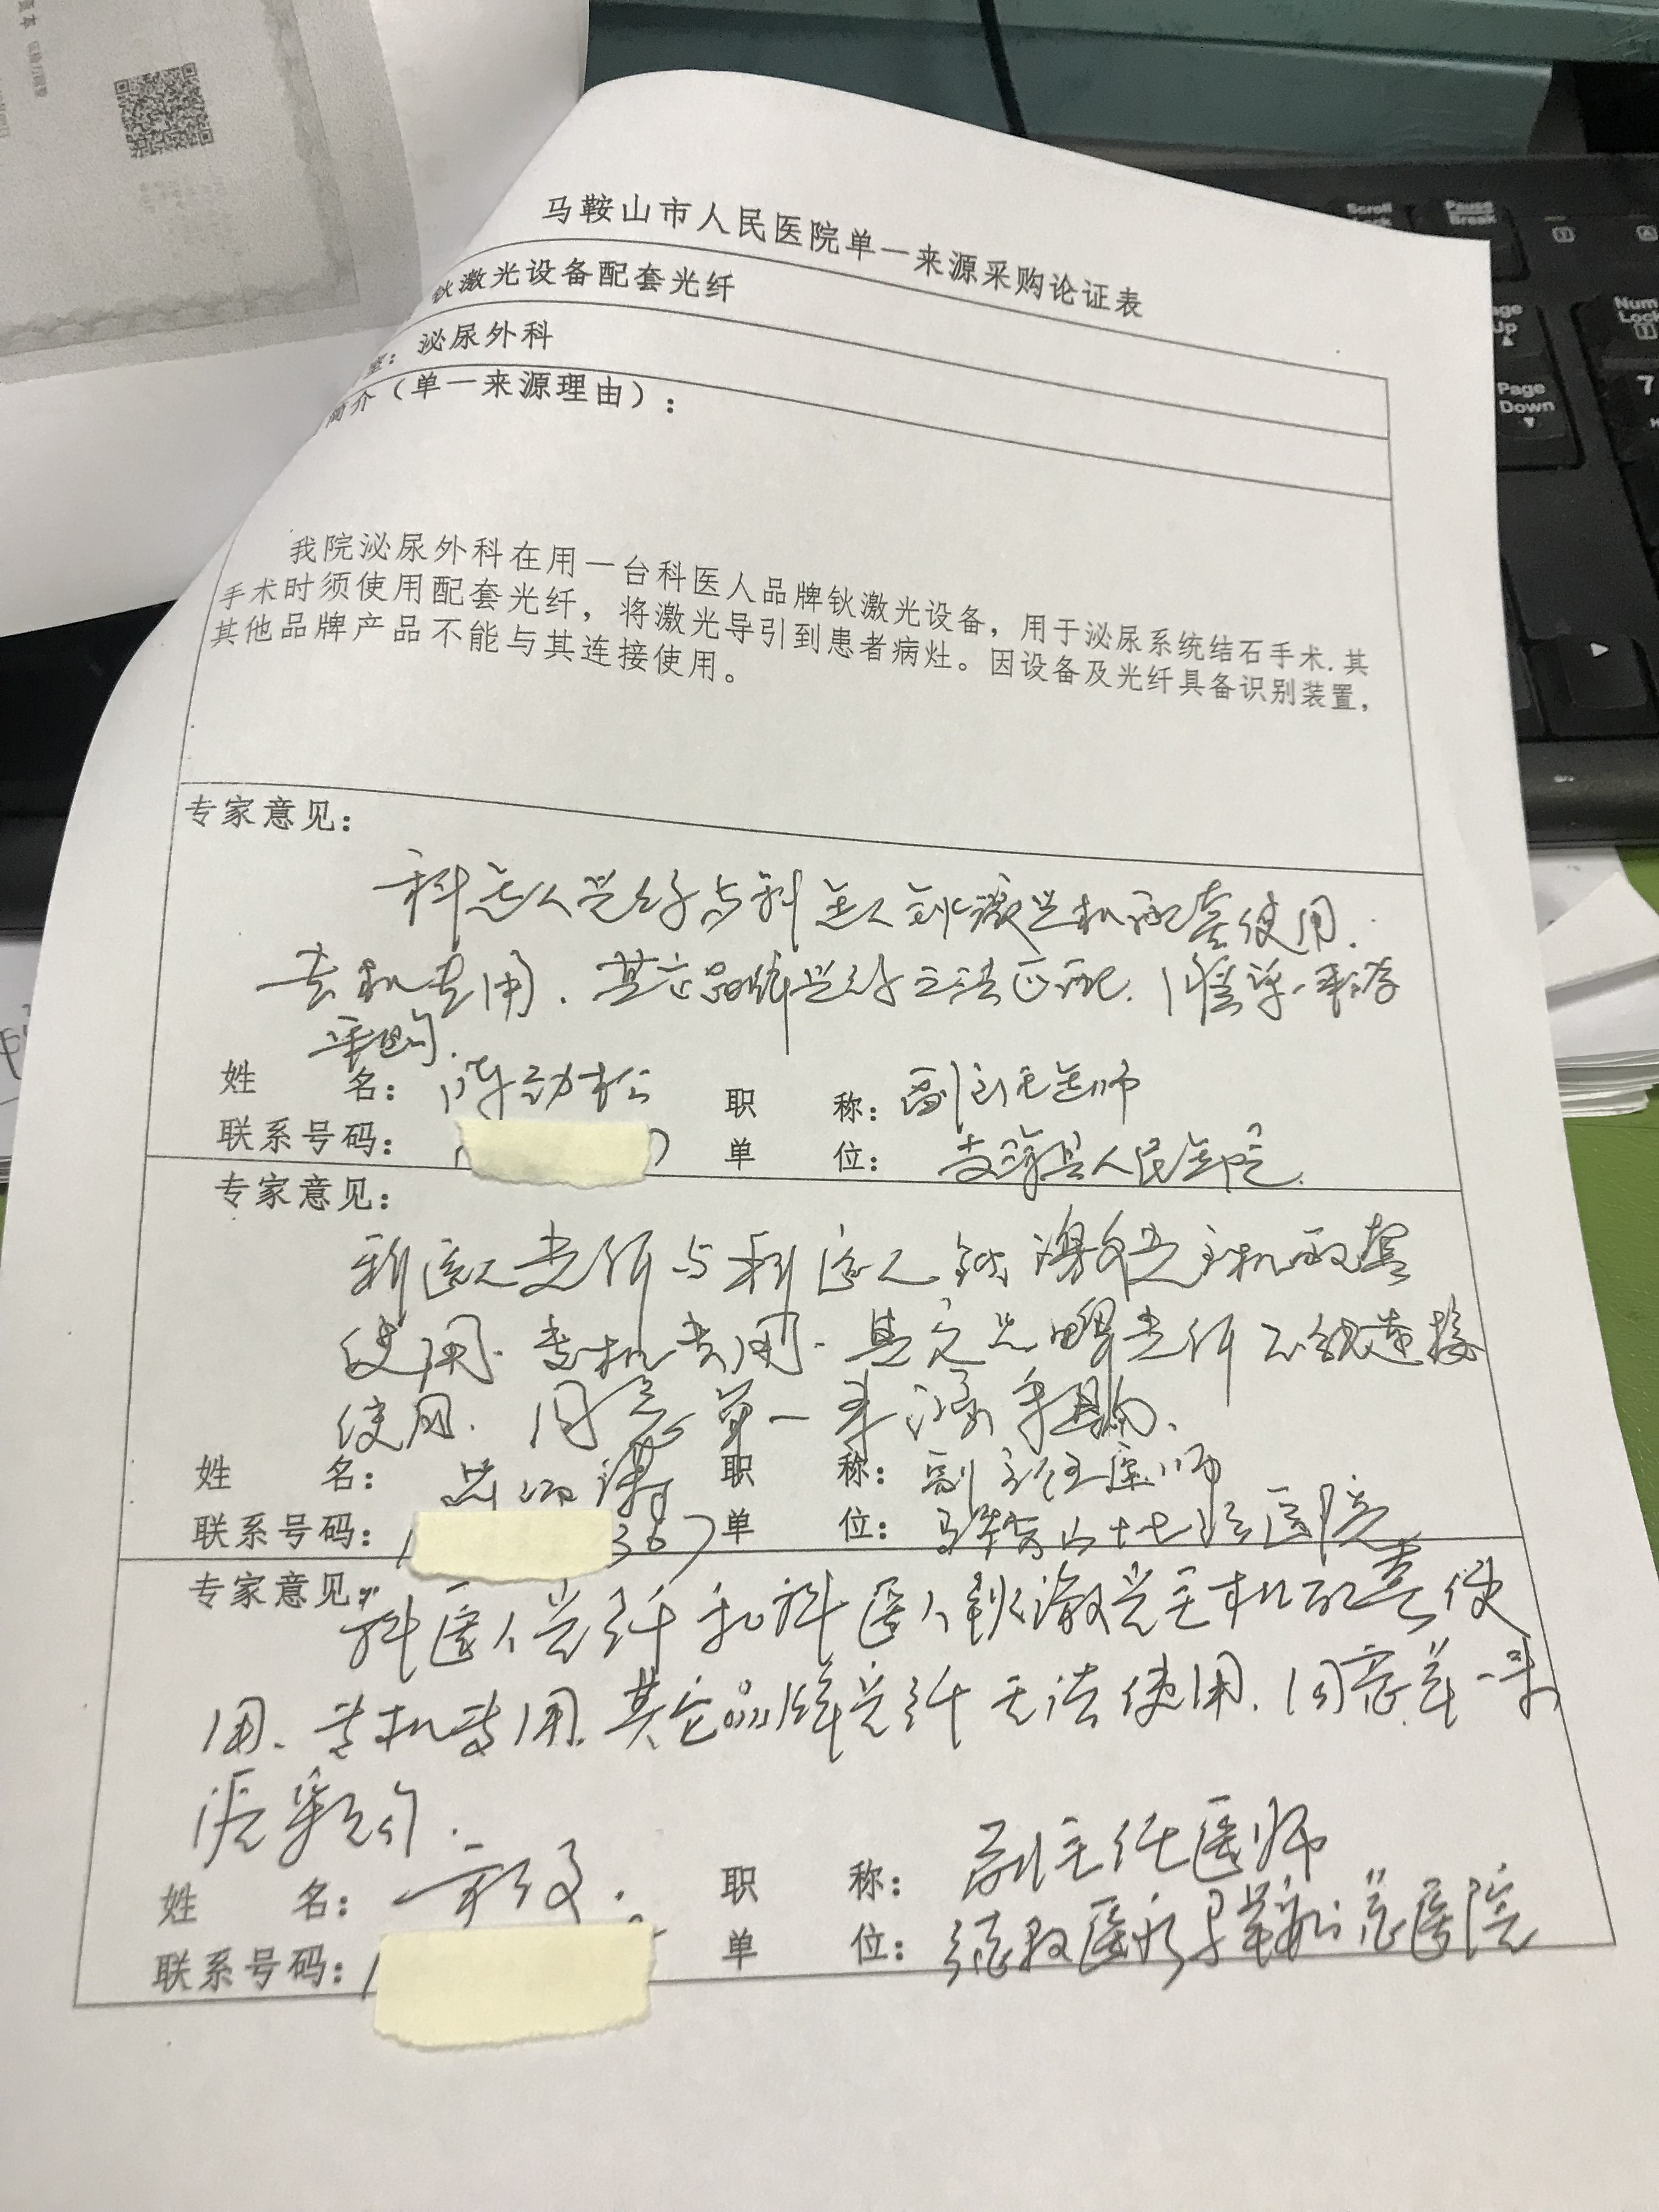 马鞍山市人民医院单一来源采购论证表
钬激光设备配套光纤
室：泌尿外科
简介（单一来源理由）：
我院泌尿外科在用一台科医人品牌钬激光设备，用于泌尿系统结石手术.其
手术时须使用配套光纤，将激光导引到患者病灶。因设备及光纤具备识别装置，
其他品牌产品不能与其连接使用。
专家意见：
科医人光纤与科医人钬激光机配套使用.
专机专用.其它品牌光纤无法匹配.同意单一来源
采购.
姓 名：陈劲松 职 称：副主任医师
联系号码： 单 位：县人民医院.
专家意见：
科医人光纤与科医人钬激光主机配套
使用.专机专用.其它品牌光纤不能连接
使用.同意单一来源采购.
姓 名： 职 称：副主任医师
联系号码：1 367 单 位：马鞍山十七冶医院
专家意见：
科医人光纤和科医人钬激光主机配套使
用.专机专用.其它品牌光纤无法使用.同意单一来
源采购.
姓 名： 职 称：副主任医师
联系号码：1 单 位：马鞍山总医院
Scroll
Lock
Pause
Break
Page
Up
Num
Lock
Page
Down
7